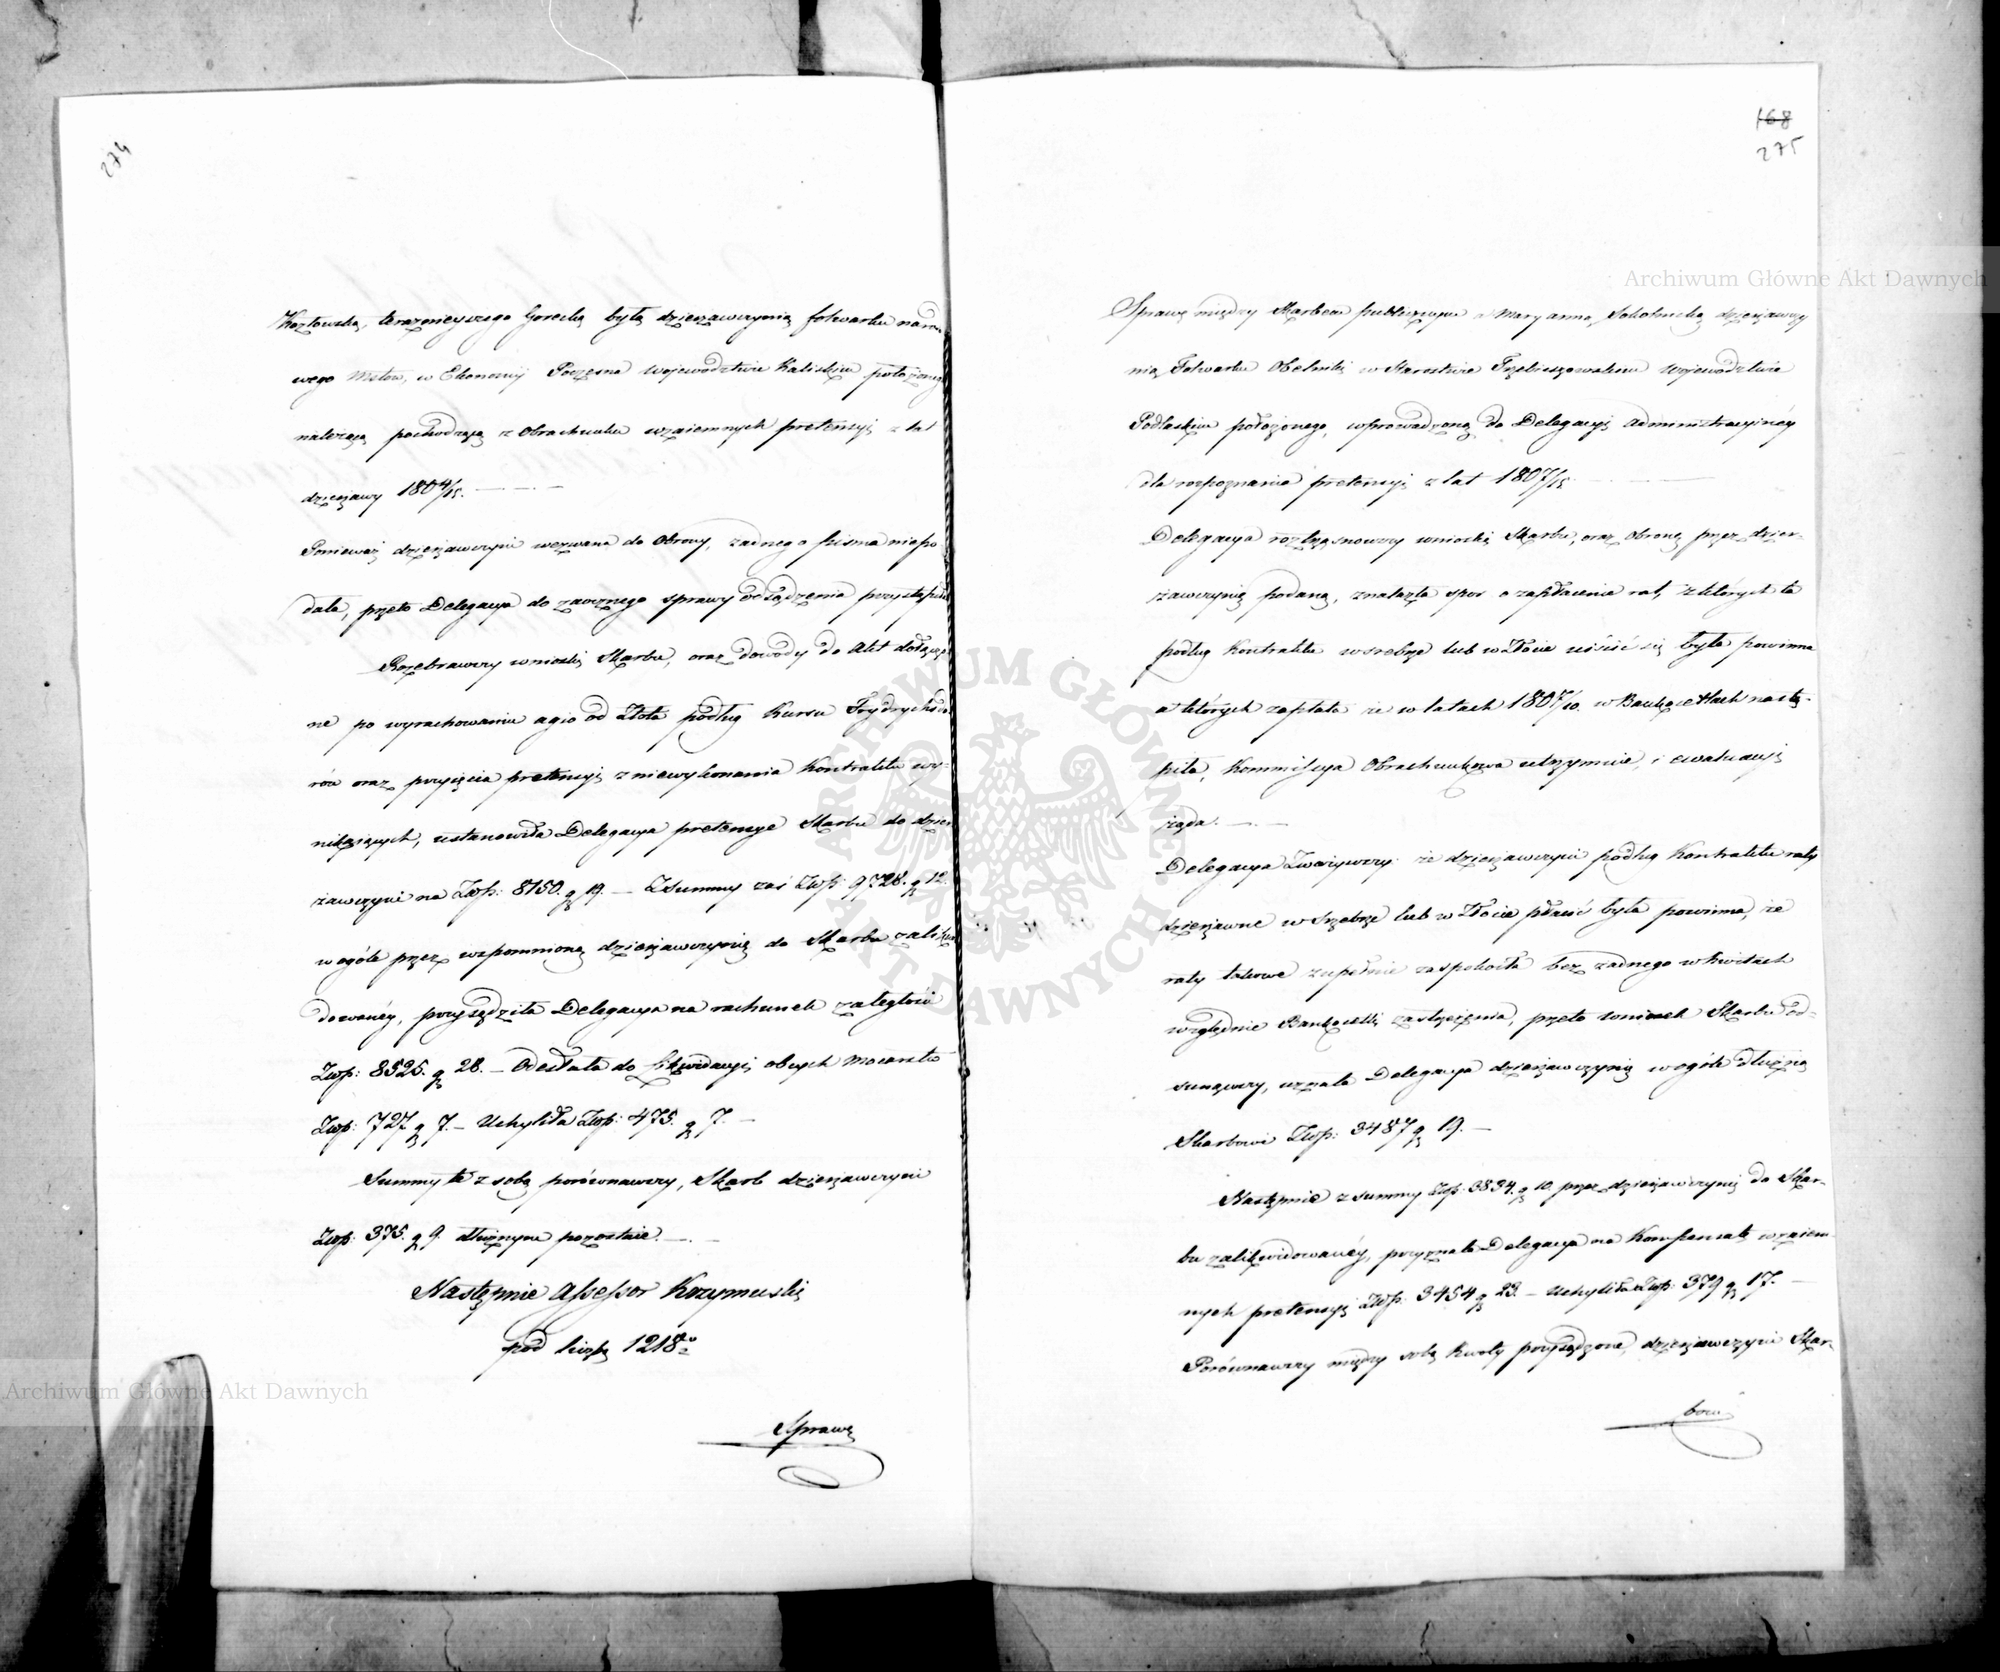 274
Kozłowską, terazniejszego Gorecką byłą dzierzawczynią folwarku naro-
wego Mstow, w Ekonomij Poczesna Wojewodztwie Kaliskiem położonego
należącą pochodzącą z Obrachunku wzaiemnych pretensyi z lat
dzierżawy 180 4/15.
Ponieważ dzierżawczyni wezwana do Obrony, zadnego pisma niepo-
dała, przeto Delegacya do zaocznego sprawy osądzenia przystąpiła
Rozebrawszy wnioski Skarbu, oraz dowody do Akt dołączo-
ne po wyrachowaniu agio od Złota podług Kursu Frydrychsdo-
rów oraz przyięcia pretensyi z niewykonania Kontraktu wy-
nikaiących, ustanowiła Delegacya pretensye Skarbu do dzier-
zawczyni na Złp: 8150. g 19. — Z Summy zaś Złp: 9728. g 12.
w ogóle przez wspomnioną dzierżawczynią do Skarbu zalikwi
dowanéy, przysądziła Delegacya na rachunek zaległości
Złp: 8525. g 28. — Odesłała do likwidacyi obcych Mocarstw
Złp: 727 g 7. — Uchyliła Złp: 475. g 7. —
Summy te z sobą porównawszy, Skarb dzierżawczyni
Złp: 375. g 9. dłużnym pozostaie.
Następnie Assessor Krzymuski
pod liczbą 1218
Sprawę
168
275
Sprawę między Skarbem publicznym a Maryanną Sokolnicką dzierżawczy
nią Folwarku Obelniki w Starostwie Trzebieszowskim Wojewodztwie
Podlaskim położonego, wprowadzoną do Delegacyi Administracyinéy
dla rozpoznania pretensyi z lat 1807/15.
Delegacya roztrząsnowszy wnioski Skarbu, oraz Obronę przez dzier-
zawczynię podaną, znalazła spor o zapłacenie rat, z których ta
podług Kontraktu w srebrze lub w Złocie uiścić się była powinna
a których zapłata że w latach 1807/10. w Bankocetlach nastą-
piła, Kommissya Obrachunkowa utrzymuie, i ewaluacyi
żąda.
Delegacya Zważywszy: że dzierżawczyni podług Kontraktu raty
dzierżawne w Srebrze lub w Złocie płacić była powinna, że
raty takowe zupełnie zaspokoiła bez zadnego w kwitach
względnie Bankocetli zastrzeżenia, przeto wniosek Skarbu od-
sunąwszy, uznała Delegacya dzierżawczynią w ogóle dłużną
Skarbowi Złp: 3487 g 19. —
Następnie z summy Złp: 3834. g 10. przez dzierżawczynię do Skar-
bu zalikwidowanéy, przyznała Delegacya na Kompensatę wzaiem-
nych pretensyi Złp: 3454 g 23. — Uchyliła Złp: 379 g 17. —
Porównawszy między sobą kwoty przysądzone, dzierżawczyni Skar-
bowi
Archiwum Główne Akt Dawnych
Archiwum Główne Akt Dawnych
ARCHIWUM GŁÓWNE AKT DAWNYCH